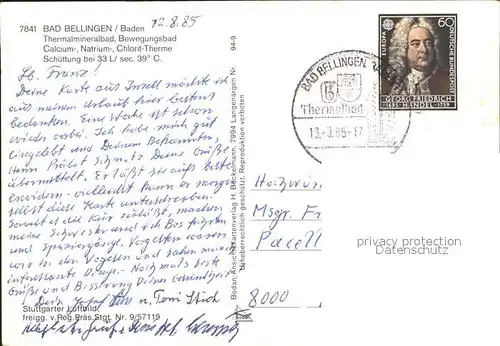 7841 BAD BELLINGEN / Baden
Thermalmineralbad, Bewegungsbad
Calcium-, Natrium-, Chlorit-Therme
Schüttung bei 33 L/ sec. 39° C.
94-9
12.8.85
Lb. Franz!
Deine Karte aus Insell möchte ich
aus meinem Urlaub hier bestens
bedanken. Eine Woche ist schon
wieder vorbei. Ich habe mich gut
eingelebt und Deinem Bekannten,
Herrn Prälat Schmatz Deine Grüße
übermittelt. Er läßt sie aufs beste
erwidern - vielleicht kann er morgen
selbst diese Karte unterschreiben.
Soweit es die Kur zuläßt, machen
meine Schwester und ich Bus fahrten
und Spaziergänge. Vorgestern waren
wir in den Vogesen und sahen manch
interessante Dinge. Nochmals beste
Grüße und
Dein Josef u. Toni
Stuttgarter Luftbild
freigg. v. Reg. Präs. Stgt. Nr. 9/57119
Bodan: Ansichtskartenverlag H. Böckelmann, 7994 Langenargen Nr.
Urheberrechtlich geschützt. Reproduktion verboten
EUROPA
60
DEUTSCHE BUNDESPOST
GEORG FRIEDRICH
HÄNDEL
1759
BAD BELLINGEN
Thermalbad
13.-8.85-17
Hochwür.
Msgr. Fr
Pacell
8000
privacy protection
Datenschutz